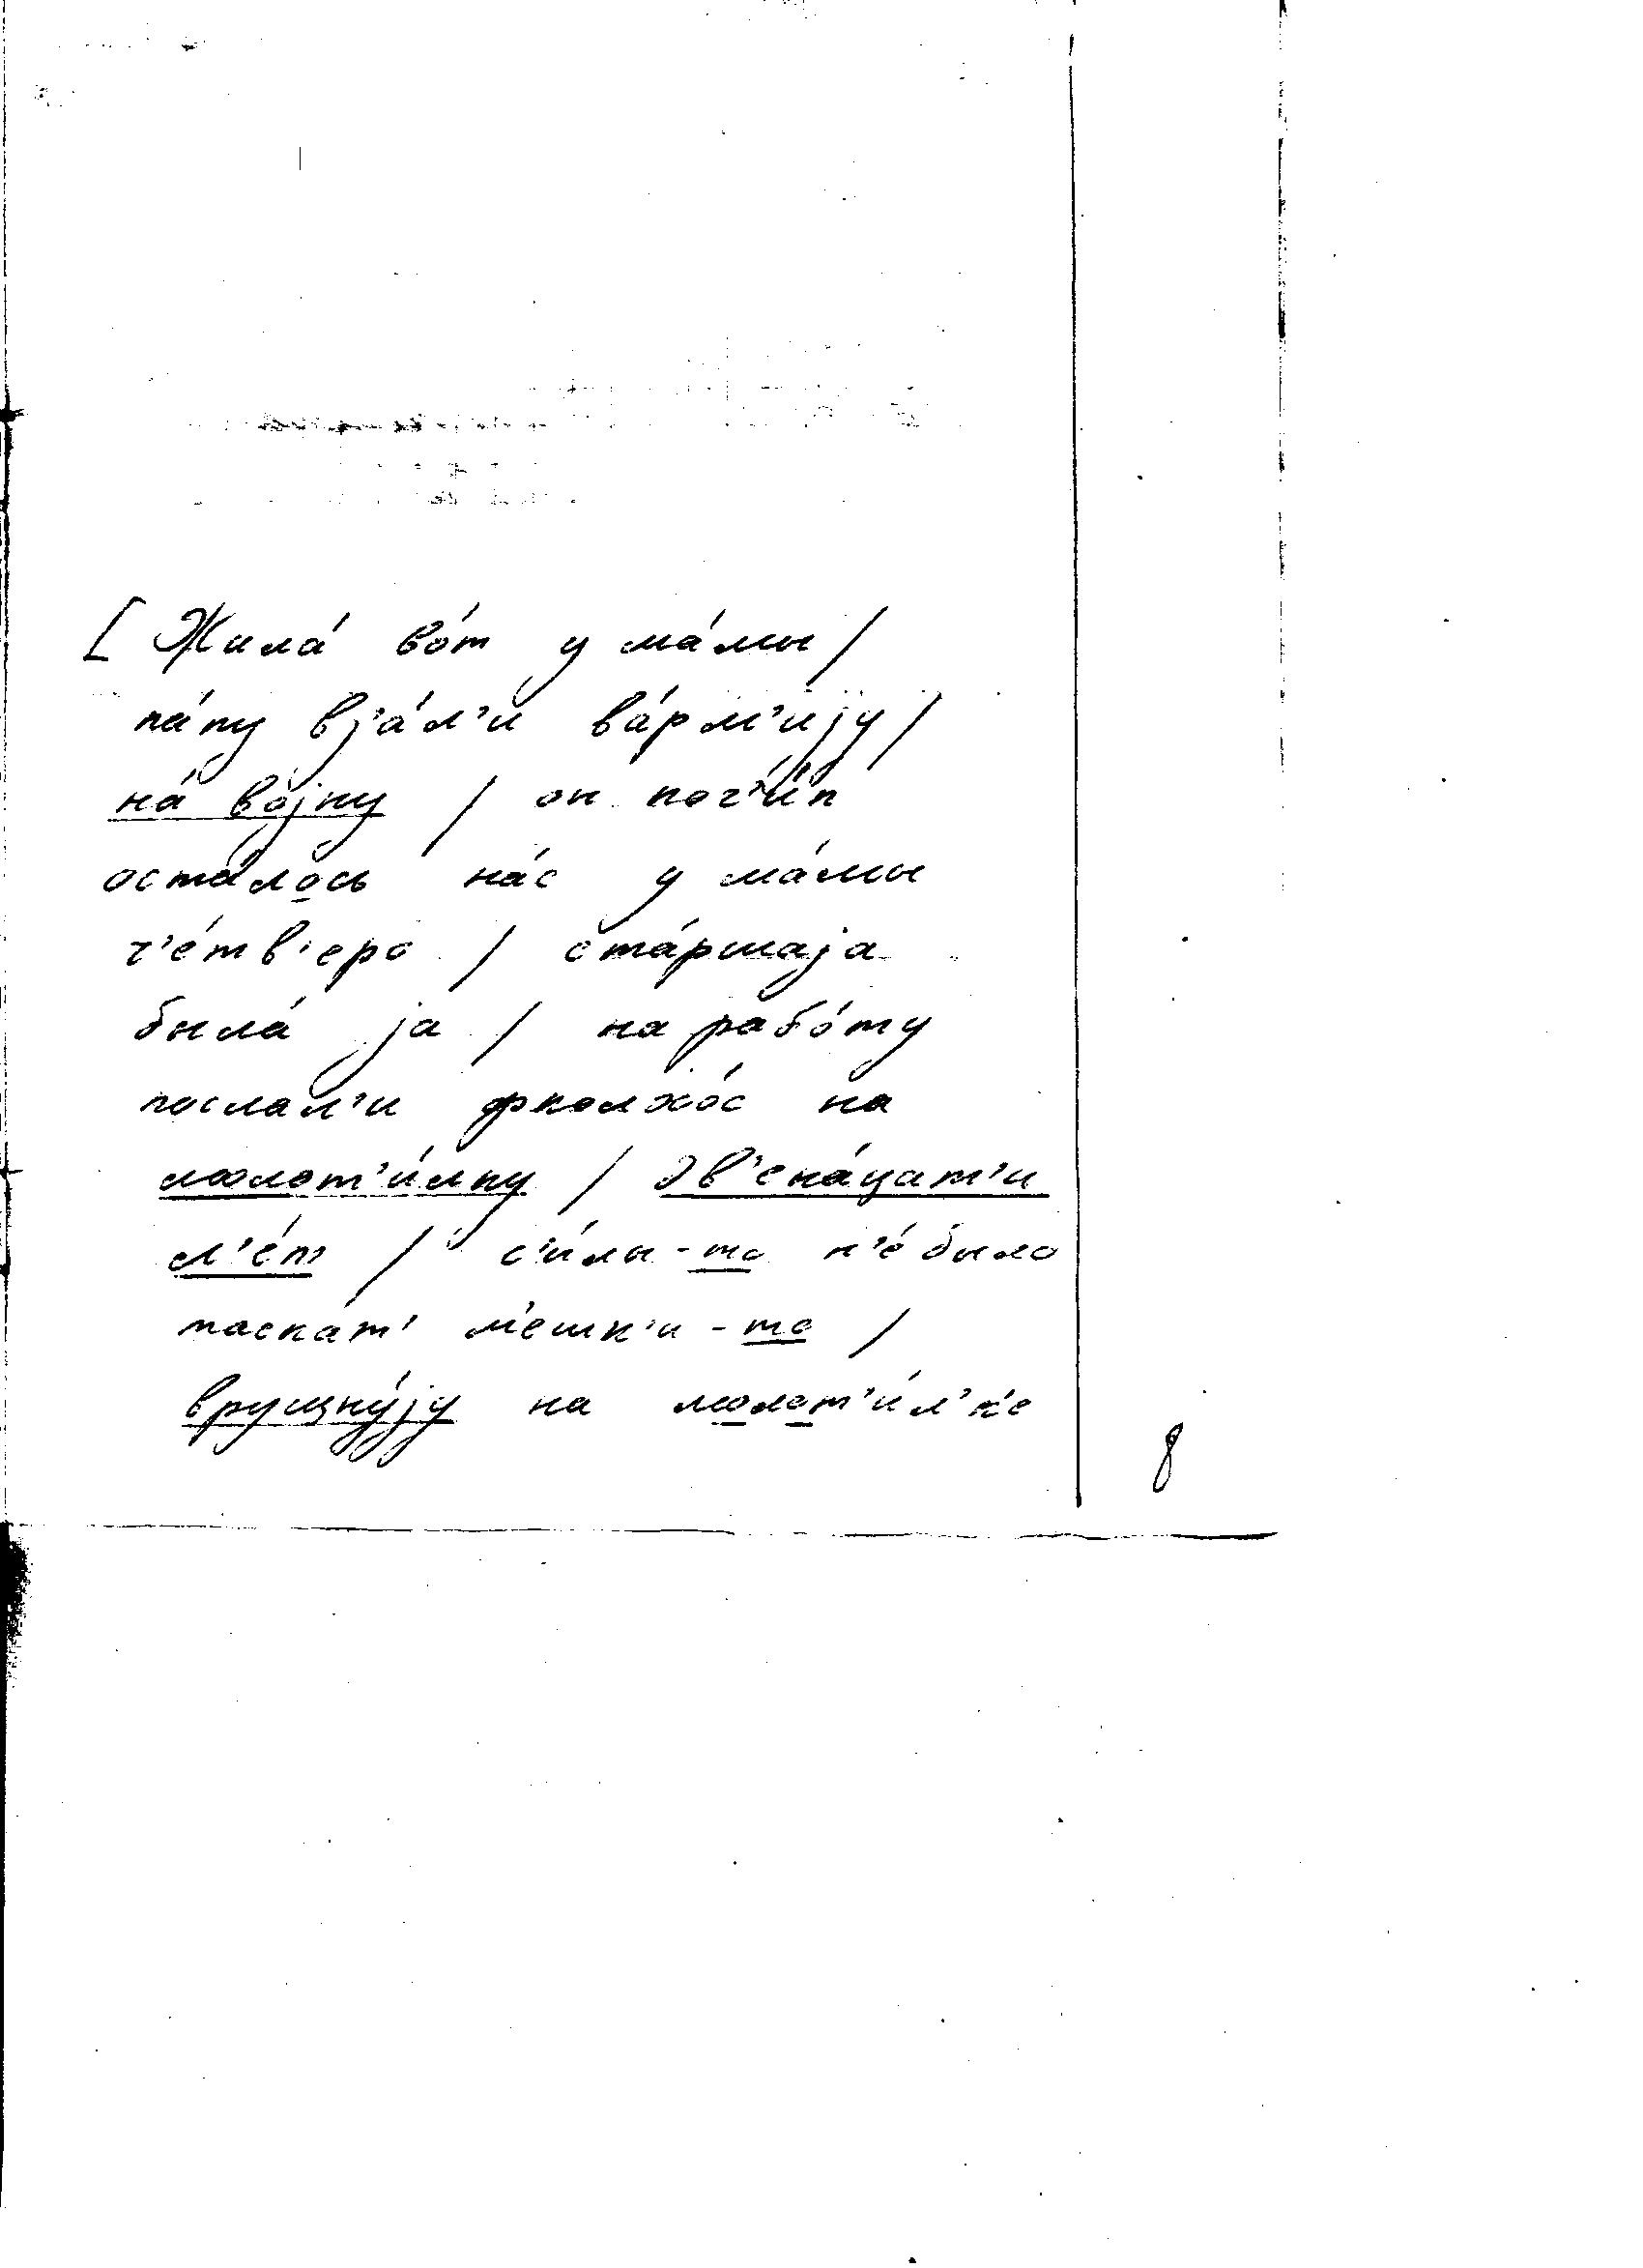 [ Жила́ во́т у ма́мы /
па́пу вј'а́л'и ва́рм'ију /
на́ војну / он пог'и́п
оста́лось на́с у ма́мы
ч'е́тв'еро / ста́ршаја
была́ ја / на рабо́ту
послал'и фколхо́с на
молот'и́лку / дв'ена́цат'и
л'е́т / с'и́лы-то н'е́ было
таска́т' м'ешк'и-то /
врушну́ју на молот'и́л'к'е
8